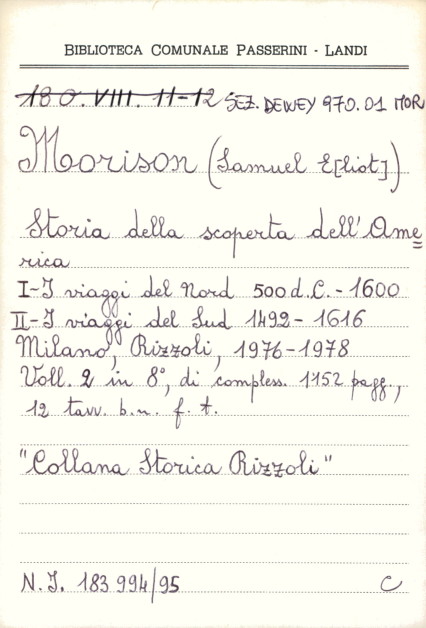 BIBLIOTECA COMUNALE PASSERINI - LANDI
180. VIII. 11-12 SEZ. DEWEY 970.01 MOR
Morison (Samuel E[liot])
Storia della scoperta dell'Ame=
rica
I-I viaggi del Nord 500 d.C. - 1600
II-I viaggi del Sud 1492 - 1616
Milano, Rizzoli, 1976-1978
Voll. 2 in 8°, di compless. 1152 pagg.,
12 tavv. b.n. f. t.
"Collana Storica Rizzoli"
N.I. 183 994/95 C